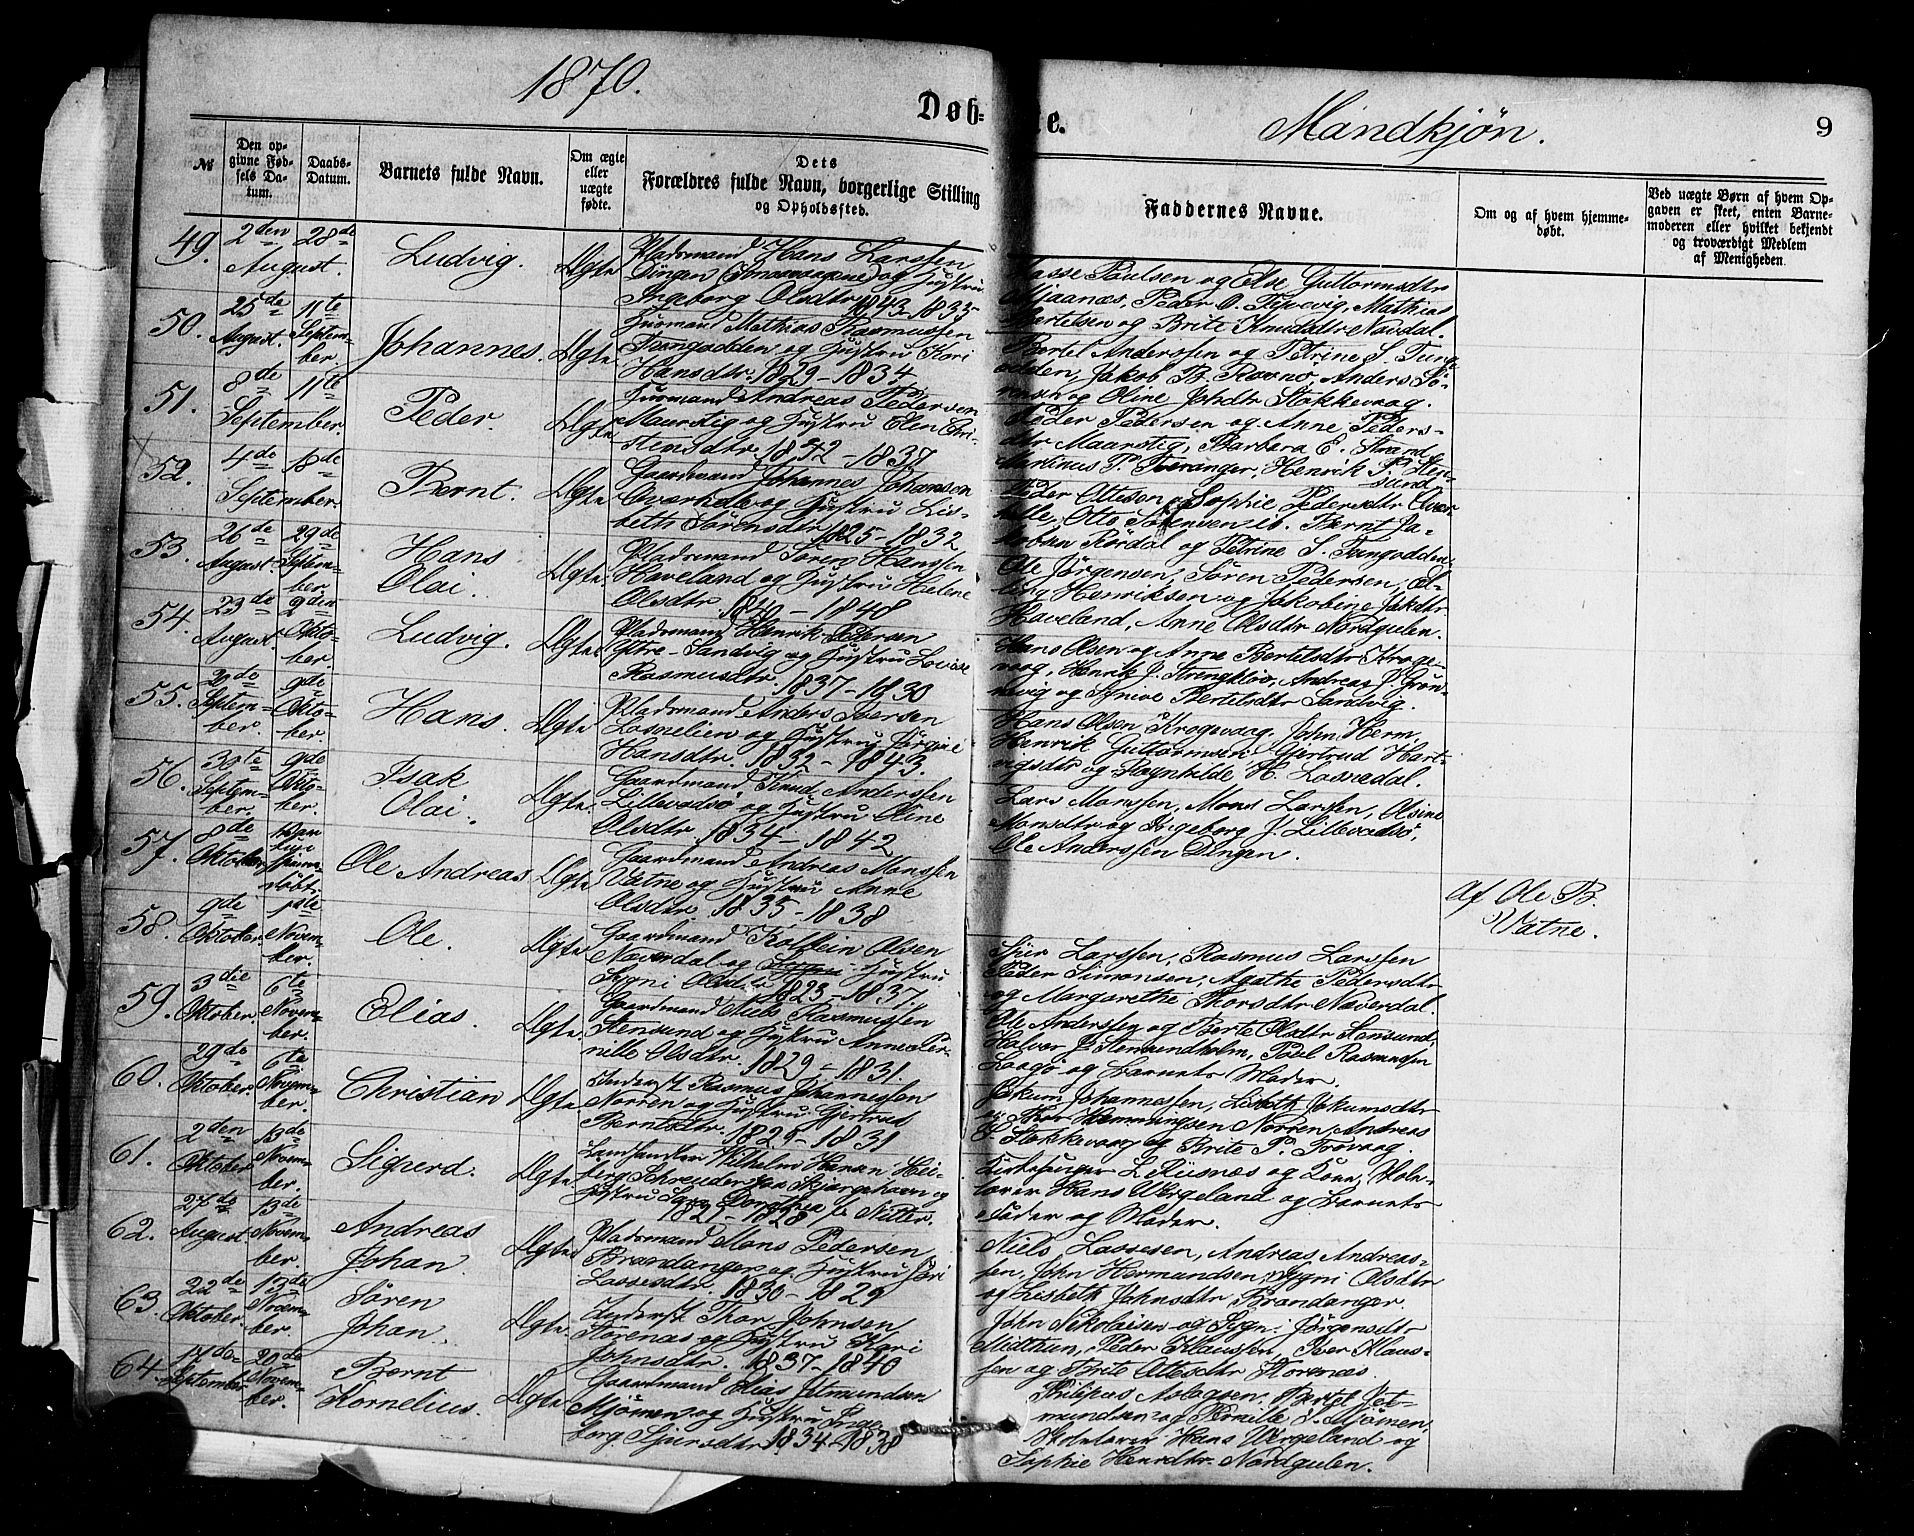 1870.
Døb=
te.
Mandkjøn.
9
№
Den op=
givne Fød=
sels Da=
tum.
Daabs=
Datum.
Barnets fulde Navn.
Om ægte
eller
uægte
fødte.
Dets
Forældres fulde Navn, borgerlige Stilling
og Opholdssted.
Faddernes Navne.
Om og af hvem hjemme=
døbt.
Ved uægte Børn af hvem Op=
gaven er skeet, enten Barne=
moderen eller hvilket bekjendt
og troværdigt Medlem
af Menigheden.
49. 2den August. 28de Ludvig. Ægte
Pladsmand Hans Larssen
Dingen og Hustru
Ingeborg Olsdtr 1843-1835
Lasse Paulsen og Else Guttormsdtr
Mjaanæs, Peder O. Tyvevig, Mathias
Bertelsen og Brite Knudsdtr Navdal.
50. 25de August. 11te September. Johannes. Ægte
Huusmand Mathias Rasmussen
Tungodden og Hustru Kari
Hansdtr. 1829-1834
Bertel Anderssen og Petrine S. Tung
odden, Jakob B. Ravnø, Anders Sö-
rensen og Oline Johsdtr Stokkevaag.
51. 8de 11te September. Peder. Ægte
Huusmand Andreas Pedersen
Maurstig og Hustru Elen Chri-
stensdtr. 1842-1837
Peder Pedersen og Anne Peders-
dtr Maarstig, Barbara E. Strand,
Martinus P. Tveranger, Henrik P. Sten-
sund.
52. 4de 18de September. Bernt. Ægte
Gaardmand Johannes Johansen
Oværkile og Hustru Lis-
beth Sörensdtr 1825-1832
Peder Ottesen og Sophie Pedersdtr Over-
kile, Otto Sörensen ib. Bernt Ja-
kobsen Rördal og Petrine S. Tungodden.
53. 26de August. 29de September. Hans
Olai. Ægte
Pladsmand Sören Hanssen
Haveland og Hustru Helene
Olsdtr. 1840-1848
Ole Jörgensen, Sören Pedersen, El-
ling Henriksen og Jakobine Jaksdtr
Haveland, Anne Olsdtr Nordgulen.
54. 23de August. 2den Oktober. Ludvig. Ægte
Pladsmand Henrik Pedersen
Ytre-Sandvig og Hustru Lovise
Rasmusdtr. 1837-1830
Hans Olsen og Anne Bertelsdtr Kroge-
vaag, Henrik J. Strengklev, Andreas J. Grön-
nevig og Synive Bertelsdtr Sandvig.
55. September. 9de Oktober. Hans. Ægte
Pladsmand Anders Iversen
Lasselien og Hustru Jörgine
Hansdtr. 1832-1843.
Hans Olsen Krogevaag, John Herm,
Henrik Guttormsen, Gjertrud Hart-
vigsdtr og Ragnhilde H. Lassedal.
56. 30te September. 9de Oktober. Isak
Olai. Ægte
Gaardmand Knud Anderssen
Lillevadsø og Hustru Oline
Olsdtr. 1834-1842
Lars Monssen, Mons Larssen, Olsine
Monsdtr og Ingeborg J. Lillevadsø,
Ole Anderssen Dingen.
57. 8de Oktober. kun hjemmedøbt. Ole Andreas Ægte
Gaardmand Andreas Monssen
Vatne og Hustru Anne
Olsdtr. 1835-1838
Af Ole B.
Vatne.
58. 9de Oktober. 1ste November. Ole. Ægte
Gaardmand Kolbein Olsen
Næverdal og Hustru
Sygni Olsdtr 1823-1837.
Sjur Larssen, Rasmus Larssen
Peder Simonsen, Agathe Pedersdtr
og Margarethe Thorsdtr Næverdal.
59. 3die Oktober. 6te November. Elias. Ægte
Gaardmand Niels Rasmussen
Stensund og Hustru Anne Per-
nille Olsdtr. 1829-1831.
Ole Anderssen og Berte Olsdtr Stensund,
Halvor J. Stensundholm, Povel Rasmussen
og Barnets Moder.
60. 29de Oktober. 6te November. Christian Ægte
Inderst Rasmus Johannessen
Norren og Hustru Gjertrud
Berntsdtr. 1829-1831
Jokum Johannessen, Lisbeth Jokumsdtr
og Thor Hemmingsen Norren, Andreas
Stokkevaag og Brite P. Trovaag.
61. 2den Oktober. 13de November. Sigurd. Ægte
Landhandler Wilhelm Hansen Hei-
berg Schreuder paa Skjærgehavn og
Hustru Sara Dorothea f. Nitter.
1827-1828
Kirkesanger L. Risnæs og Kone, Skole-
lærer Hans Wergeland og Barnets
Fader og Moder.
62. 27de August. 13de November. Andreas
Johan. Ægte
Pladsmand Mons Pedersen
Brandanger og Hustru Siri
Lassesdtr. 1830-1829
Niels Lassesen, Andreas Andreas-
sen, John Hermundsen, Sygni Olsdtr
og Lisbeth Johnsdtr Brandanger.
63. 22de Oktober. 13de November. Sören
Johan. Ægte
Inderst Thor Johnsen
Storenæs og Hustru Kari
Johnsdtr. 1837-1840
John Nikolaisen og Sygni Jörgensdtr
Midthun, Peder Klaussen, Iver Klaus-
sen og Brite Ottesdtr Storenæs.
64. 17de September. 20de November. Bernt
Kornelius. Ægte
Gaardmand Elias Jetmundsen
Mjömen og Hustru Inge-
borg Sjursdtr. 1834-1838
Philippus Aslagsen, Bertel Jet-
mundsen og Pernille J. Mjömen,
Skolelærer Hans Wergeland og
Sophie Henrdtr. Nordgulen.